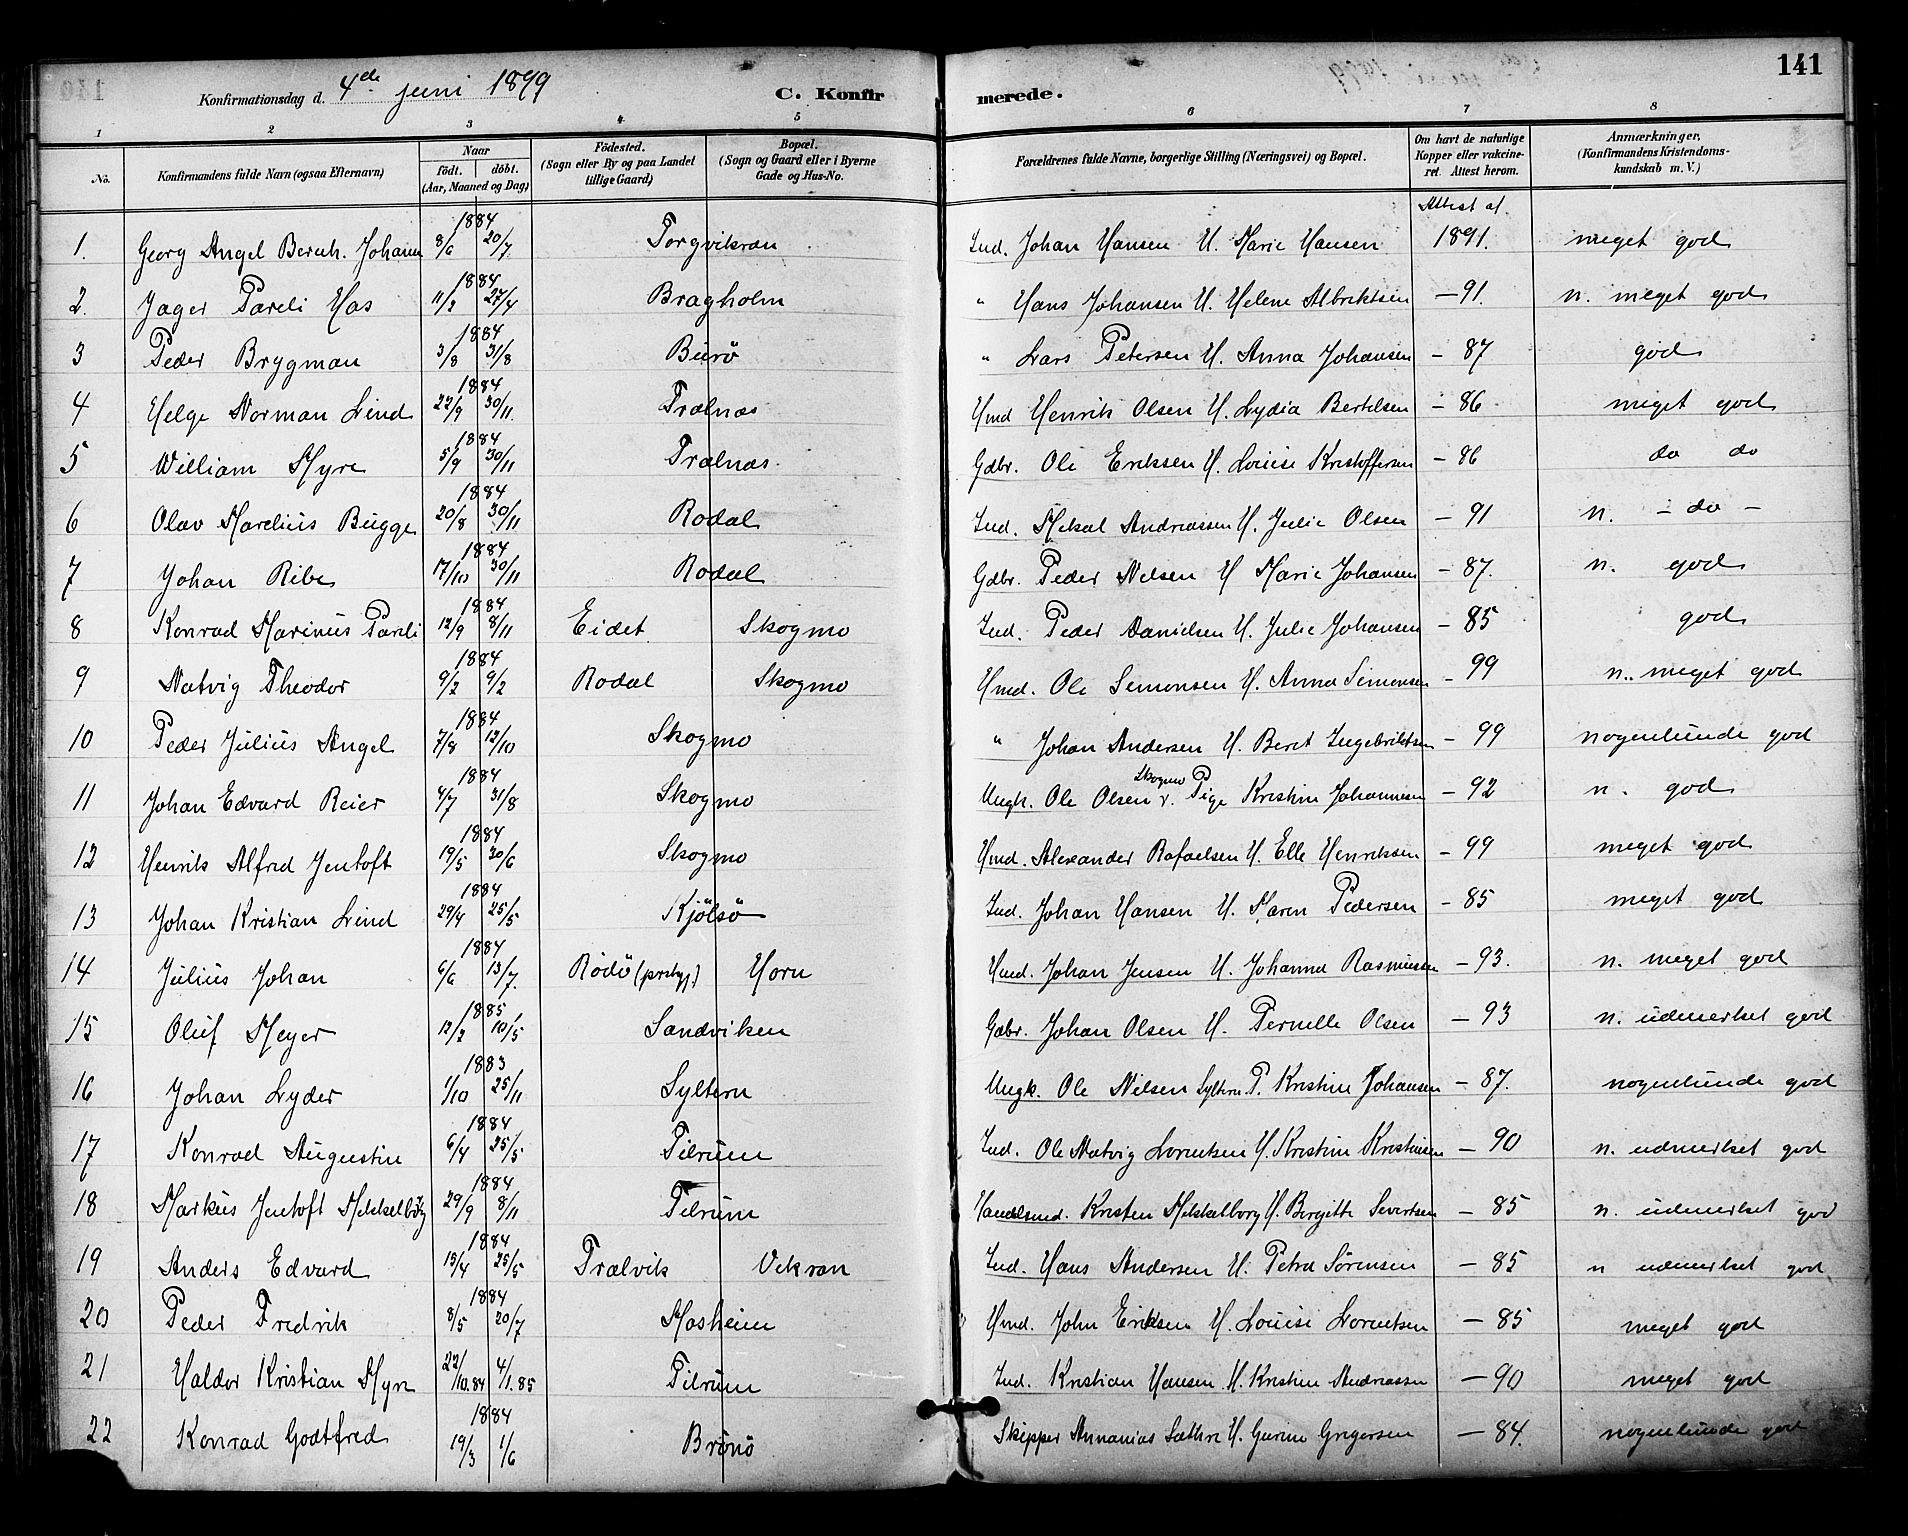 141
Konfirmationsdag d. 4de juni 1899 C. Konfir merede.
1 2 3 4 5 6 7 8
No. Konfirmandens fulde Navn (ogsaa Efternavn) Naar födt. döbt. (Aar, Maaned og Dag) Födested. (Sogn eller By og paa Landet tillige Gaard) Bopæl. (Sogn og Gaard eller i Byerne Gade og Hus-No. Forældrenes fulde Navne, borgerlige Stilling (Næringsvei) og Bopæl. Om havt de naturlige Kopper eller vakcineret. Attest herom. Anmærkninger. (Konfirmandens Kristendomskundskab m. V.)
Attest af
1. Georg Angel Bernh. Johann 1884 8/6 20/7 Torgvikran Ind. Johan Hansen H. Marie Hansen 1891. meget god
2. Jager Pareli Has 1884 11/2 27/4 Bragholm " Hans Johansen H. Helene Albriktsen - 91. n. meget god
3 Peder Brygman 1884 3/8 31/8 Burö " Lars Petersen H. Anna Johansen - 87 god
4 Helge Norman Lind 1884 22/9 30/11. Trælnæs Hmd Henrik Olsen H. Lydia Bertelsen - 86 meget god
5 William Myre 1884 5/9 30/11 Trælnæs. Gdbr. Ole Eriksen H. Louise Kristoffersen - 86 do do
6 Olav Marelius Bugge 1884 20/8 30/11 Rodal Ind. Mekal Andreassen H. Julie Olsen - 91 n. - do -
7 Johan Ribe 1884 17/10 30/11 Rodal Gdbr. Peder Nelsen H Marie Johansen - 87. n. god
8 Konrad Marinus Pareli 1884 12/9 8/11 Eidet Skogmo Ind. Peder Danielsen H. Julie Johansen - 85 god
9 Natvig Theodor 1884 9/2 9/2 Rodal Skogmo Hmd. Ole Simonsen H. Anna Simonsen - 99 n. meget god
10 Peder Julius Angel 1884 7/8 12/10 Skogmo " Johan Andersen H. Beret Ingebriktsen - 99 nogenlunde god
11 Johan Edvard Reier 1884 4/7 31/8 Skogmo Ungk. Ole Olsen Skogmo v. Pige Kristine Johannesen - 92 n. god
12 Henrik Alfred Jentoft 1884 19/5 30/6 Skogmo Hmd. Alexander Rafaelsen H. Elle Henriksen - 99 meget god
13 Johan Kristian Lind 1884 29/4 25/5 Kjölsö Ind. Johan Hansen H. Maren Pedersen - 85 meget god
14 Julius Johan 1884 6/6 13/7. Rödö (prstgj.) Horn Hmd. Johan Jensen H. Johanna Rasmussen - 93. n. meget god
15 Oluf Meyer 1885 12/2 10/5 Sandviken Gdbr. Johan Olsen H. Pernelle Olsen - 93 n. udmerket god
16 Johan Lyder 1883 1/10 25/11 Syltern Ungk. Ole Nilsen Syltern. P. Kristine Johansen - 87. nogenlunde god
17 Konrad Augustin 1884 6/4 25/5 Tilrum Ind. Ole Natvig Lorentsen H. Kristine Kristensen - 90 n. udmerket god
18 Markus Jentoft Mekkelborg 1884 29/9 8/11 Tilrum Handelsmd. Kristen Mekkelborg H. Birgitte Severtsen - 85 n. udmerket god
19 Anders Edvard 1884 13/4 25/5 Trælvik Vikran Ind. Hans Andersen H. Petra Sörensen - 85 n udmerket god
20 Peder Fredrik 1884 8/5 20/7 Mosheim Hmd. John Eriksen H. Louise Lorentsen - 85 meget god
21 Haldor Kristian Myre 22/10.84 4/1.85 Tilrum Ind. Kristian Hansen H. Kristine Andreassen - 90 meget god
22 Konrad Godtfred 1884 19/3 1/6 Brönö Skipper Annanias Sæthre H. Gurine Gregersen - 84. nogenlunde god